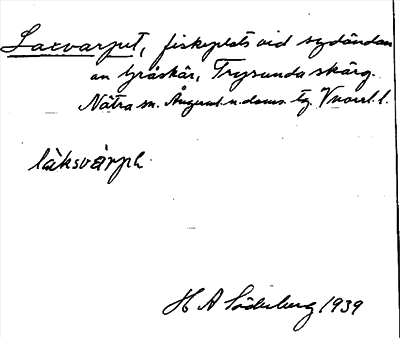 Laxvarpet, fiskeplats vid sydändan
av Gråskär, Trysunda skärg.
Nätra sn. Ångerml. n. doms. tg. Vnorrl. l.
làksvárph
H A Söderberg 1939